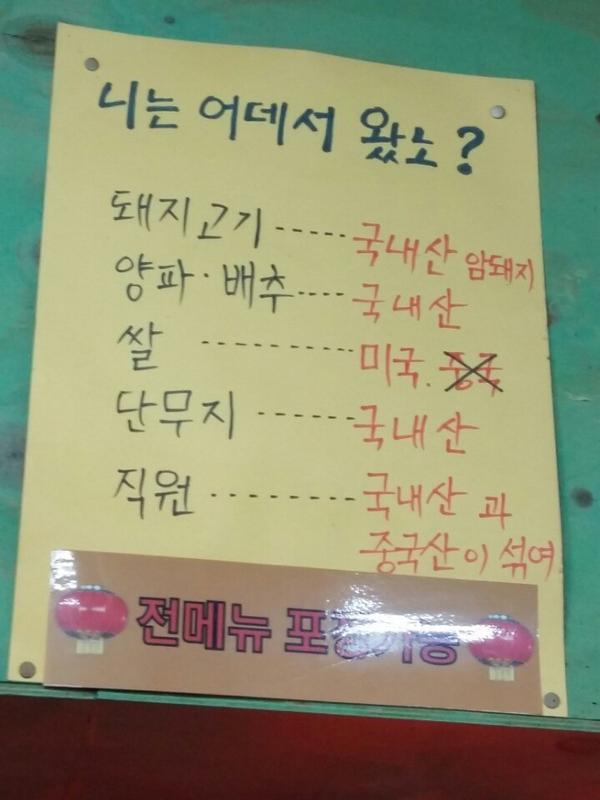 니는 어데서 왔노?
돼지고기 ----- 국내산 암돼지
양파·배추 ---- 국내산
쌀 ---------- 미국. 중국
단무지 ------ 국내산
직원 --------- 국내산 과
중국산이 섞여
전메뉴 포장가능